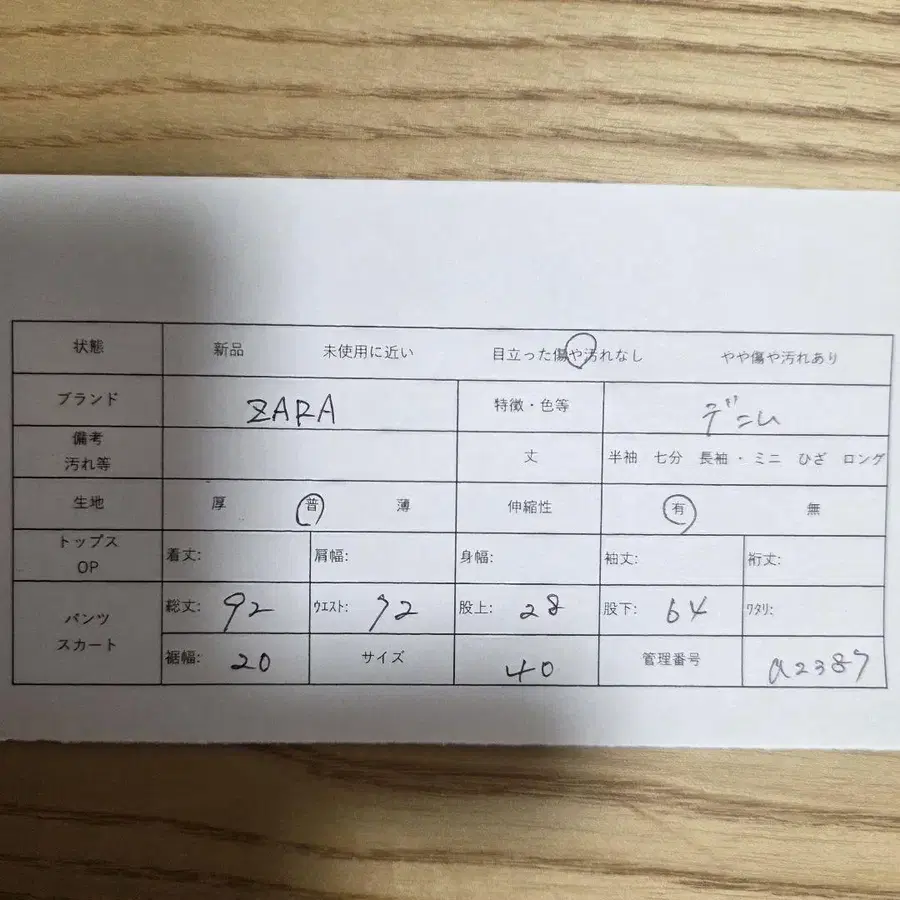 状態 新品 未使用に近い 目立った傷や汚れなし やや傷や汚れあり
ブランド ZARA 特徴・色等 デニム
備考
汚れ等 丈 半袖 七分 長袖・ミニ ひざ ロング
生地 厚 普 薄 伸縮性 有 無
トップス
OP 着丈: 肩幅: 身幅: 袖丈: 裄丈:
パンツ
スカート 総丈: 92 ウエスト: 72 股上: 28 股下: 64 ワタリ:
裾幅: 20 サイズ 40 管理番号 a2387